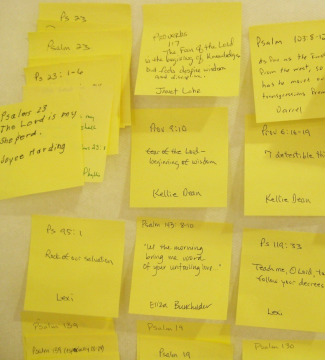 Ps 23
Psalm 23
Ps 23:1-6
Psalms 23
The Lord is my
Sheperd.
Joyce Harding
Phyllis
Proverbs
1:7
The Fear of the Lord
is the beginning of knowledge,
but fools despise wisdom
and discipline.
Janet Luhe
Psalm 103:8-12
As far as the
from the west, so
has he
transgressions from
Darrel
Prov 9:10
fear of the Lord -
beginning of wisdom
Kellie Dean
Prov 6:16-19
7 detestible
Kellie Dean
Ps 95:1
Rock of our salvation
Lexi
Psalm 143:8-10
"Let the morning
bring me word
of your unfailing love..."
Eliza
Ps 119:33
Teach me, O Lord, to
follow your decrees
Lexi
Psalm 139
Psalm 139
Psalm 19
Psalm 19
Psalm 130